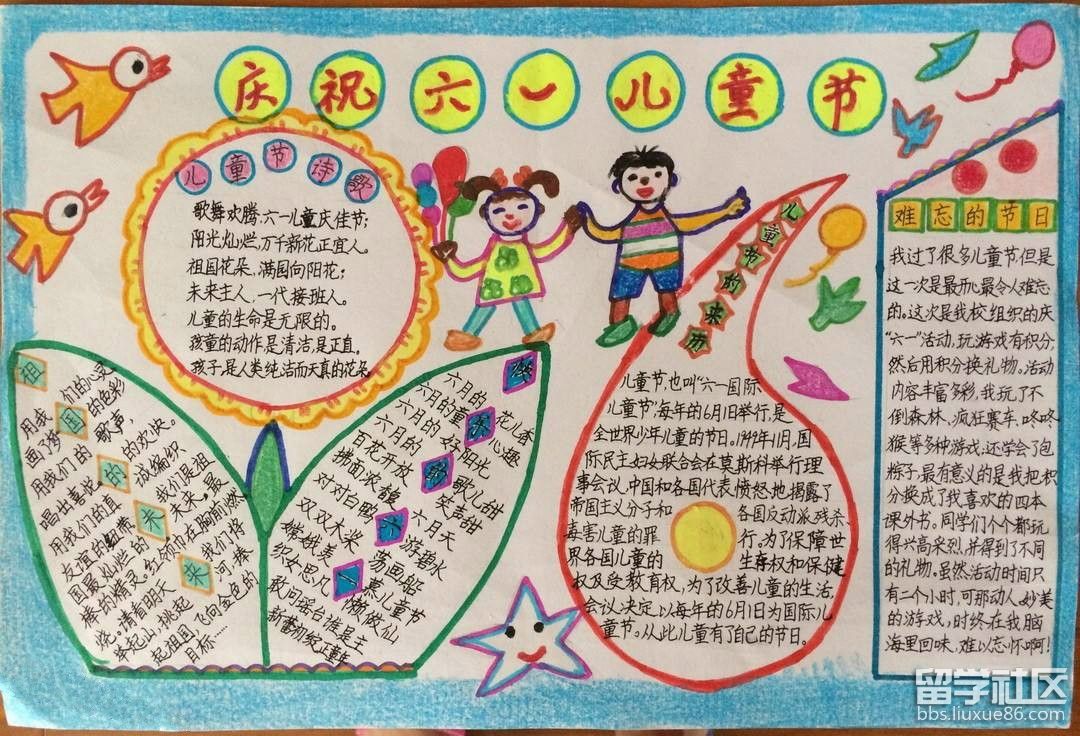 庆祝六一儿童节
儿童节诗歌
歌舞欢腾,六一儿童庆佳节;
阳光灿烂,万千新花正宜人。
祖国花朵、满园向阳花;
未来主人、一代接班人。
儿童的生命是无限的。
孩童的动作是清洁,是正直。
孩子,是人类纯洁而天真的花朵
祖国的未来
用我们的心灵
画了梦的色彩
用我们的歌声
唱出喜悦的欢快。
用我们的真
友谊的
我们是祖
国最灿烂的未来。最
棒的精灵。红领巾在胸前燃
烧。清清明天我们将
举起山,挑起
起祖国,飞向金色的
目标……
六月的花儿香
六月的童心趣
六月的好阳光
百花开放歌儿甜
拂面浓馥笑声甜
对对白鸭六月天
双双木桨游碧水
嫦娥羡荡画船
织女思凡慕儿童节
敢问瑶台谁是主
儿童节的来历
儿童节,也叫“六一国际
儿童节”,每年的6月1日举行,是
全世界少年儿童的节日。1949年11月,国
际民主妇女联合会在莫斯科举行理
事会议,中国和各国代表愤怒地揭露了
帝国主义分子和各国反动派残杀、
毒害儿童的罪行。为了保障世
界各国儿童的生存权和保健
权及受教育权,为了改善儿童的生活,
会议决定以每年的6月1日为国际儿
童节。从此儿童有了自己的节日。
难忘的节日
我过了很多儿童节但是
这一次是最开心最令人难忘
的。这次是我校组织的庆
“六一”活动,玩游戏有积分,
然后用积分换礼物。活动
内容丰富多彩,我玩了不
倒森林、疯狂赛车,咚咚
猴等多种游戏,还学会了包
粽子,最有意义的是我把积
分换成了我喜欢的四本
课外书。同学们个个都玩
得兴高采烈,并得到了不同
的礼物。虽然活动时间只
有二个小时,可那动人、妙美
的游戏,时终在我脑
海里回味,难以忘怀啊!
留学社区
bbs.liuxue86.com